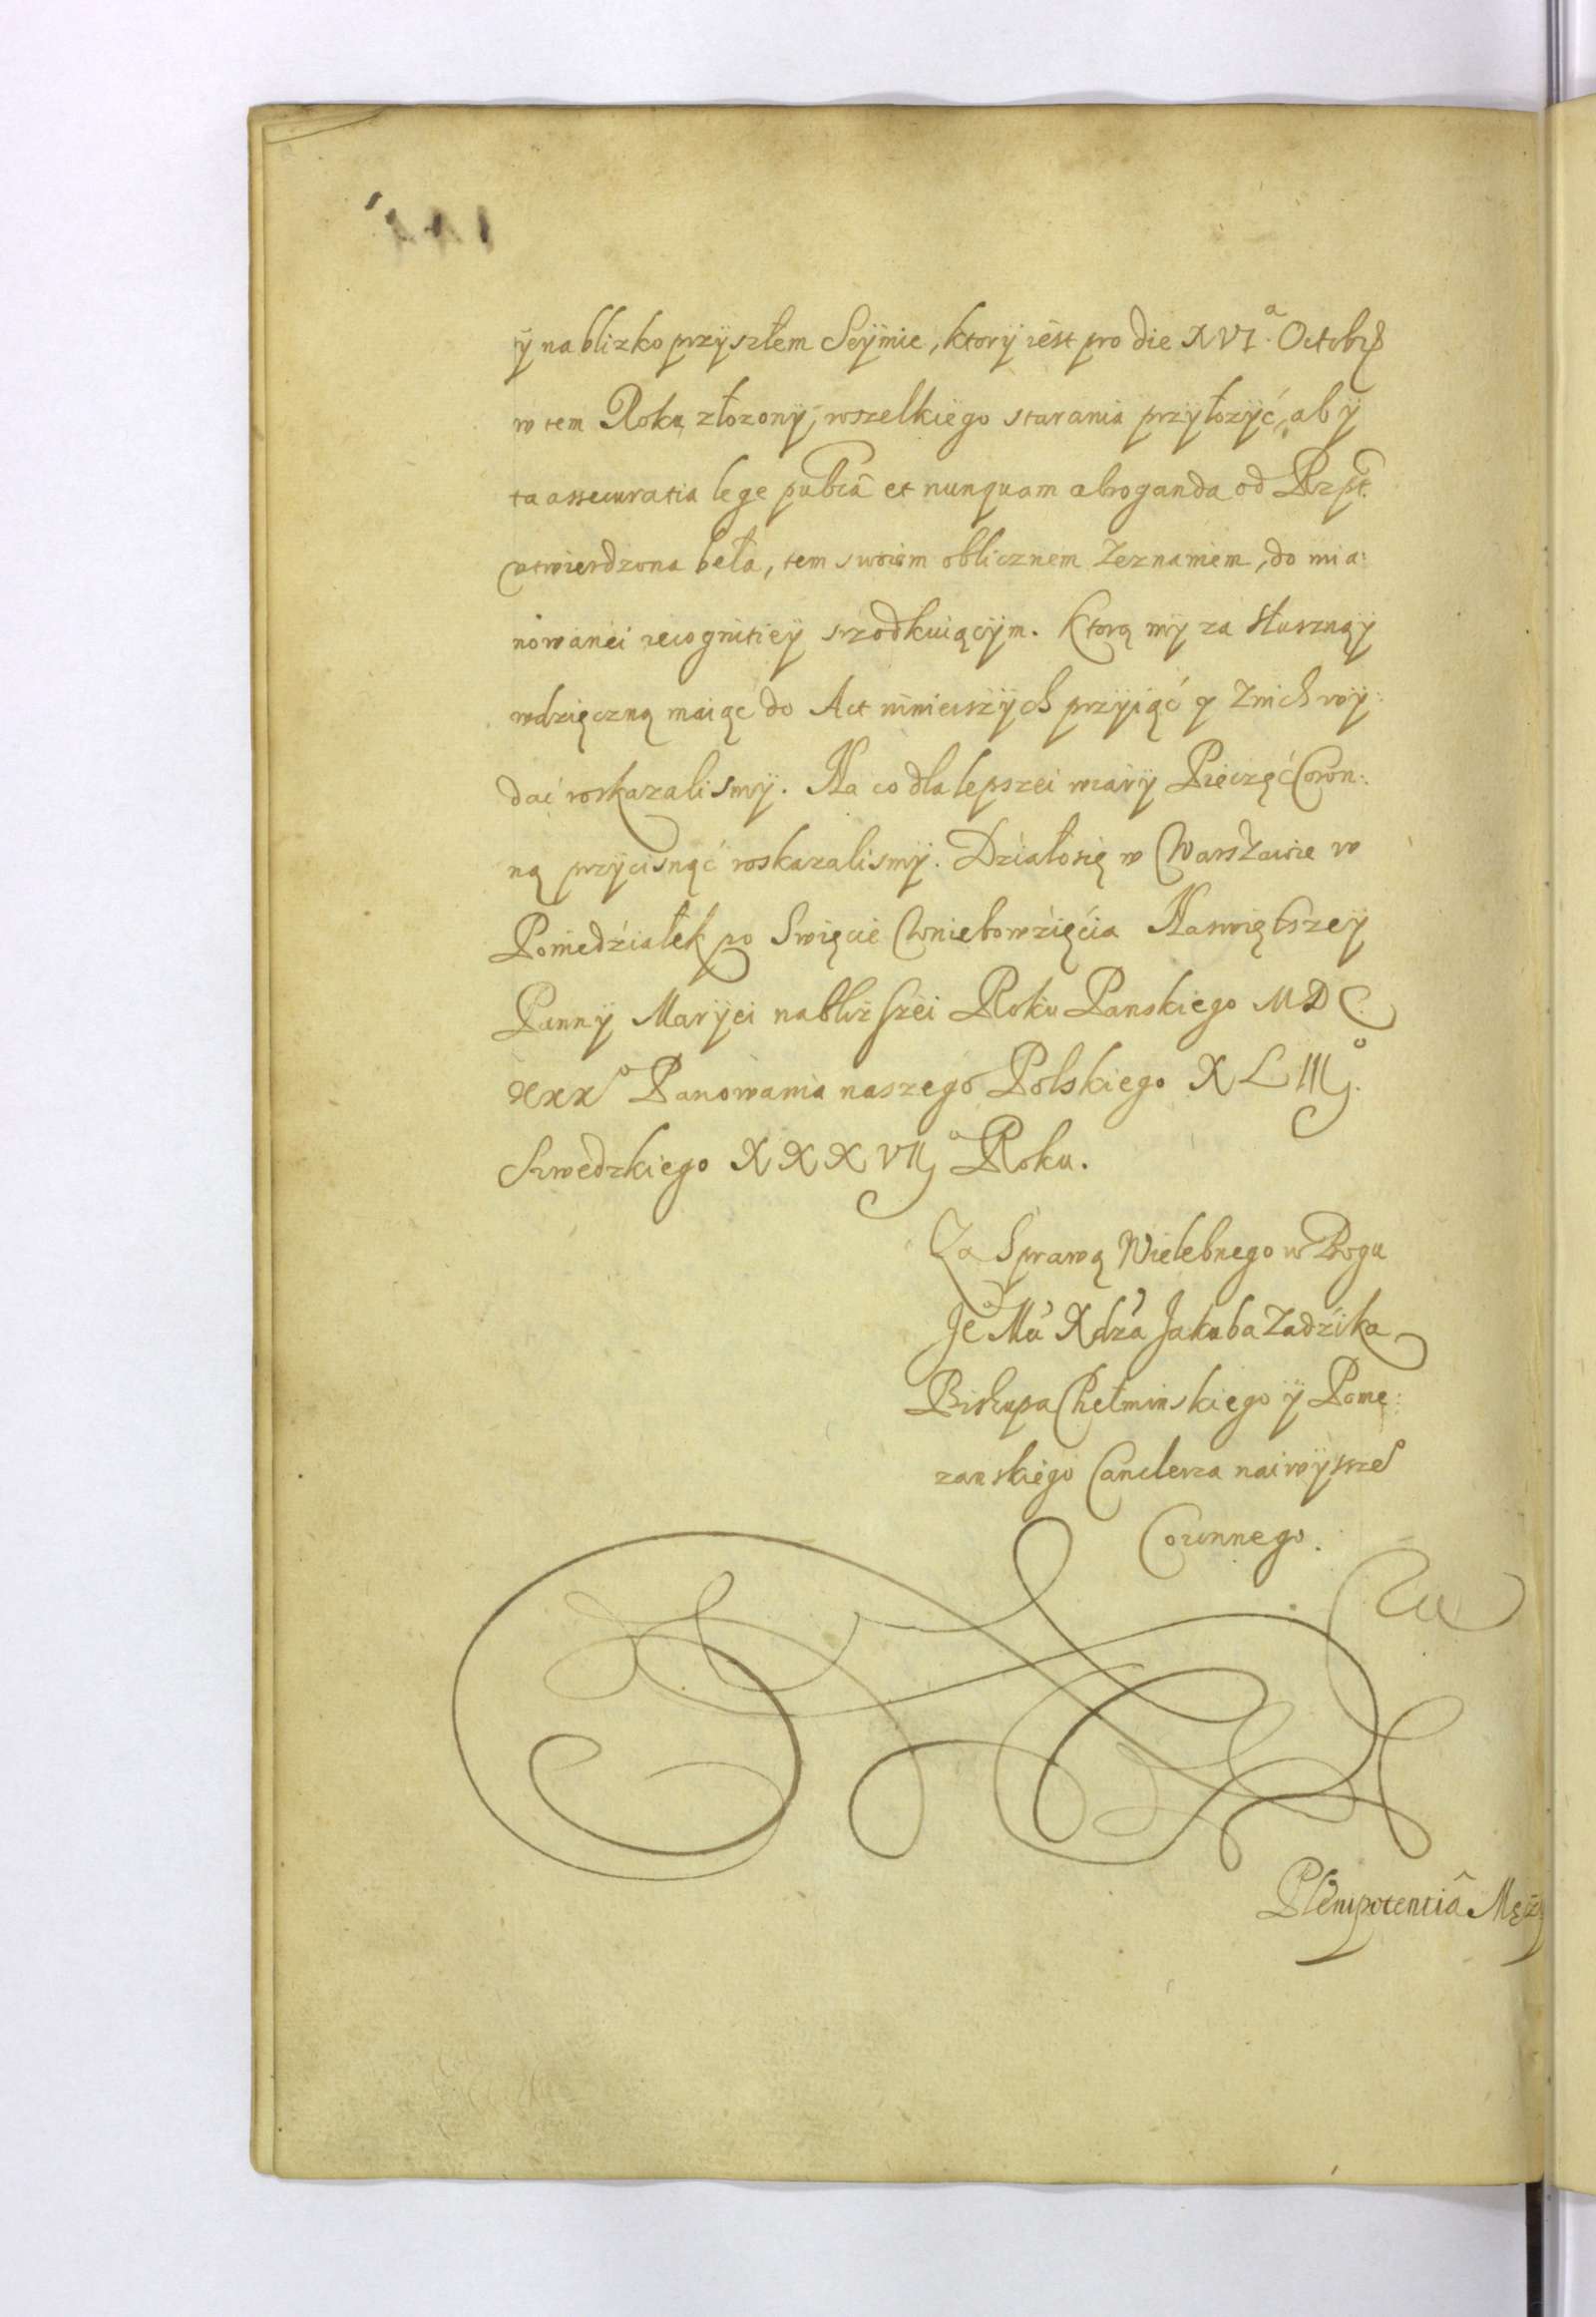 ÿ na blizko przÿszłem Seÿmie, ktorÿ iest pro die XVI.ª Octobr͡
w tem Roku złozonÿ, wszelkiego starania przÿłozÿć, abÿ
ta assecuratia lege publcâ et nunquam abroganda od Rzpt.
vtwierdzona beła, tem swoim oblicznem Zeznaniem, do mia:
nowanei recognitieÿ srzodkuiącÿm. Ktorą mÿ za słuszną ÿ
wdzięczną maiąc do Act ninieiszÿch przÿiąć y Znich wÿ:
dać roskazalismÿ. Na co dla lepszei wiarÿ Pieczęć Coron:
ną przÿcisnąć roskazalismÿ. Działosię w Warszawie w
Poniedźiałek po Swięcie Wniebowźięćia Naswiętszeÿ
Pannÿ Marÿei nabliższei Roku Panskiego MDC.
xxxº Panowania naszego Polskiego XLIIIj.º
Szwedzkiego XXXVIIjº Roku.
Za Sprawą Wielebnego w Bogu
Je° Mći Xdza Jakuba Zadźika
Biskupa Chełminskiego ÿ Pome:
zanskiego Canclerza naiwÿsze°
Coronnego.
Plenipotentiâ